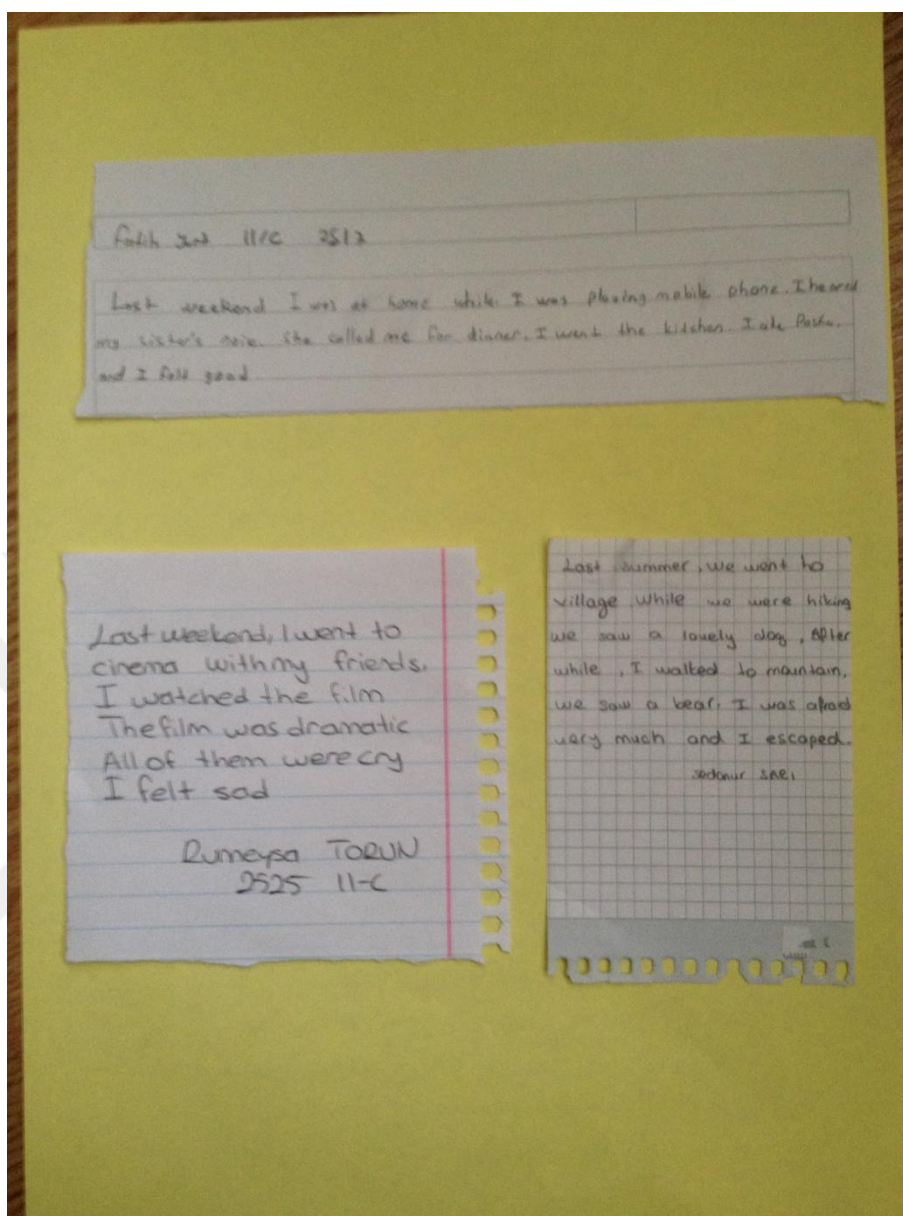 Fatih 11/C 2513
Last weekend I was at home while I was playing mobile phone. I heared
my sister's She called me for dinner. I went the kitchen. I ate Pasta.
and I felt good
Last weekend, I went to
cinema with my friends.
I watched the film
The film was dramatic
All of them were cry
I felt sad
Rumeysa TORUN
2525 11-C
Last summer, we went to
village. While we were hiking
we saw a lovely dog, After
while, I walked to mountain.
we saw a bear. I was afraid
very much and I escaped.
sedanur